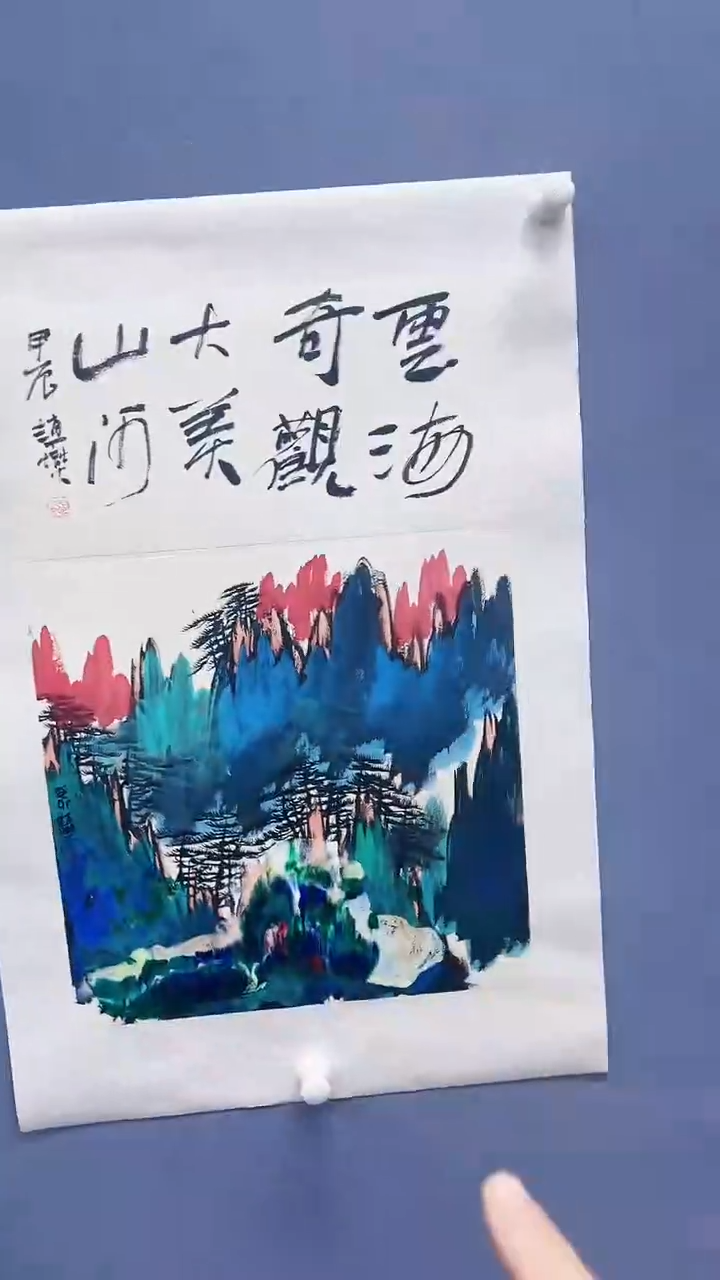 雲海
奇觀
大美
山河
甲辰